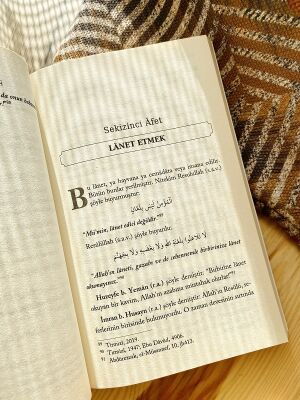 da onun
Sekizinci Âfet
LÂNET ETMEK
Bu lânet, ya hayvana ya cemâdâta veya insana edilir.
Bütün bunlar yerilmiştir. Nitekim Resûlullah (s.a.v.)
şöyle buyurmuştur:
الْمُؤْمِنُ لَيْسَ بِلَعَّانٍ
"Mü'min, lânet edici değildir."
Resûlullah (s.a.v.) şöyle buyurdu:
لَا تَلَاعَنُوا بِلَعْنَةِ اللَّهِ وَلَا بِغَضَبِهِ وَلَا بِجَهَنَّمَ
"Allah'ın lâneti, gazabı ve de cehennemle birbirinize lânet
okumayınız."
Huzeyfe b. Yemân (r.a.) şöyle demiştir: "Birbirine lânet
okuyan bir kavim, Allah'ın azabına müstahak olurlar."
İmran b. Husayn (r.a.) şöyle demiştir: Allah'ın Resûlü, se-
ferlerinin birisinde bulunuyordu. O zaman devesinin sırtında
89 Tirmizî, 2019.
90 Tirmizî, 1947; Ebu Dâvûd, 4906.
91 Abdürrezzak, el-Müsannef, 10,